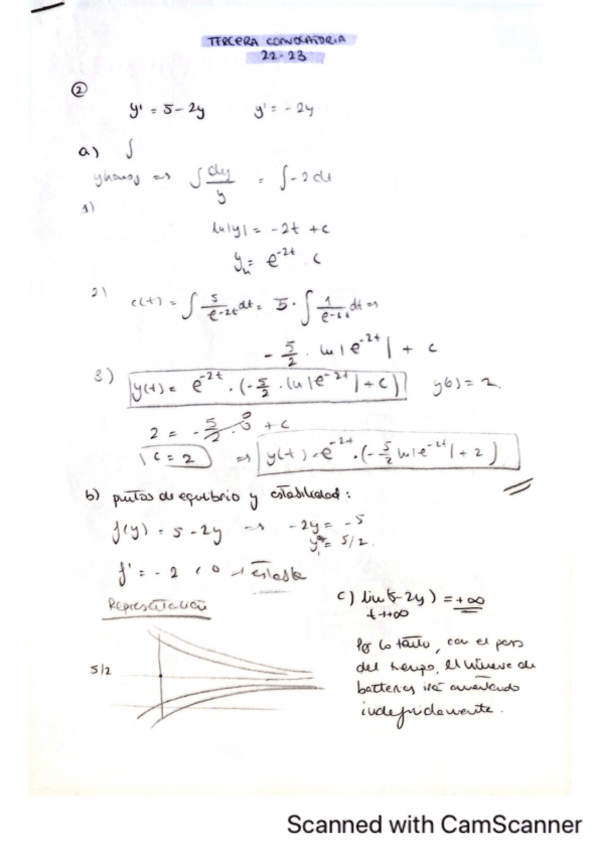 TERCERA CONVOCATORIA
22-23
②
y' = 5-2y y' = -2y
a) ∫
⇒ ∫ dy/y = ∫-2dt
1)
ln|y| = -2t + c
y_h = e^-2t · c
2) c(t) = ∫ 5/e^-2t dt = 5 · ∫ 1/e^-2t dt ⇒
- 5/2 · ln|e^-2t| + c
3) y(t) = e^-2t · (-5/2 · ln|e^-2t| + c) y(0) = 2
2 = -5/2 · 0 + c
c = 2 ⇒ y(t) = e^-2t · (-5/2 ln|e^-2t| + 2)
b) puntos de equilibrio y estabilidad:
f(y) = 5-2y ⇒ -2y = -5
y* = 5/2
f' = -2 < 0 → estable
Representación
5/2
c) lim (5-2y) = +∞
t→+∞
Por lo tanto, con el paso
del tiempo, el número de
bacterias irá aumentando
indefinidamente.
Scanned with CamScanner